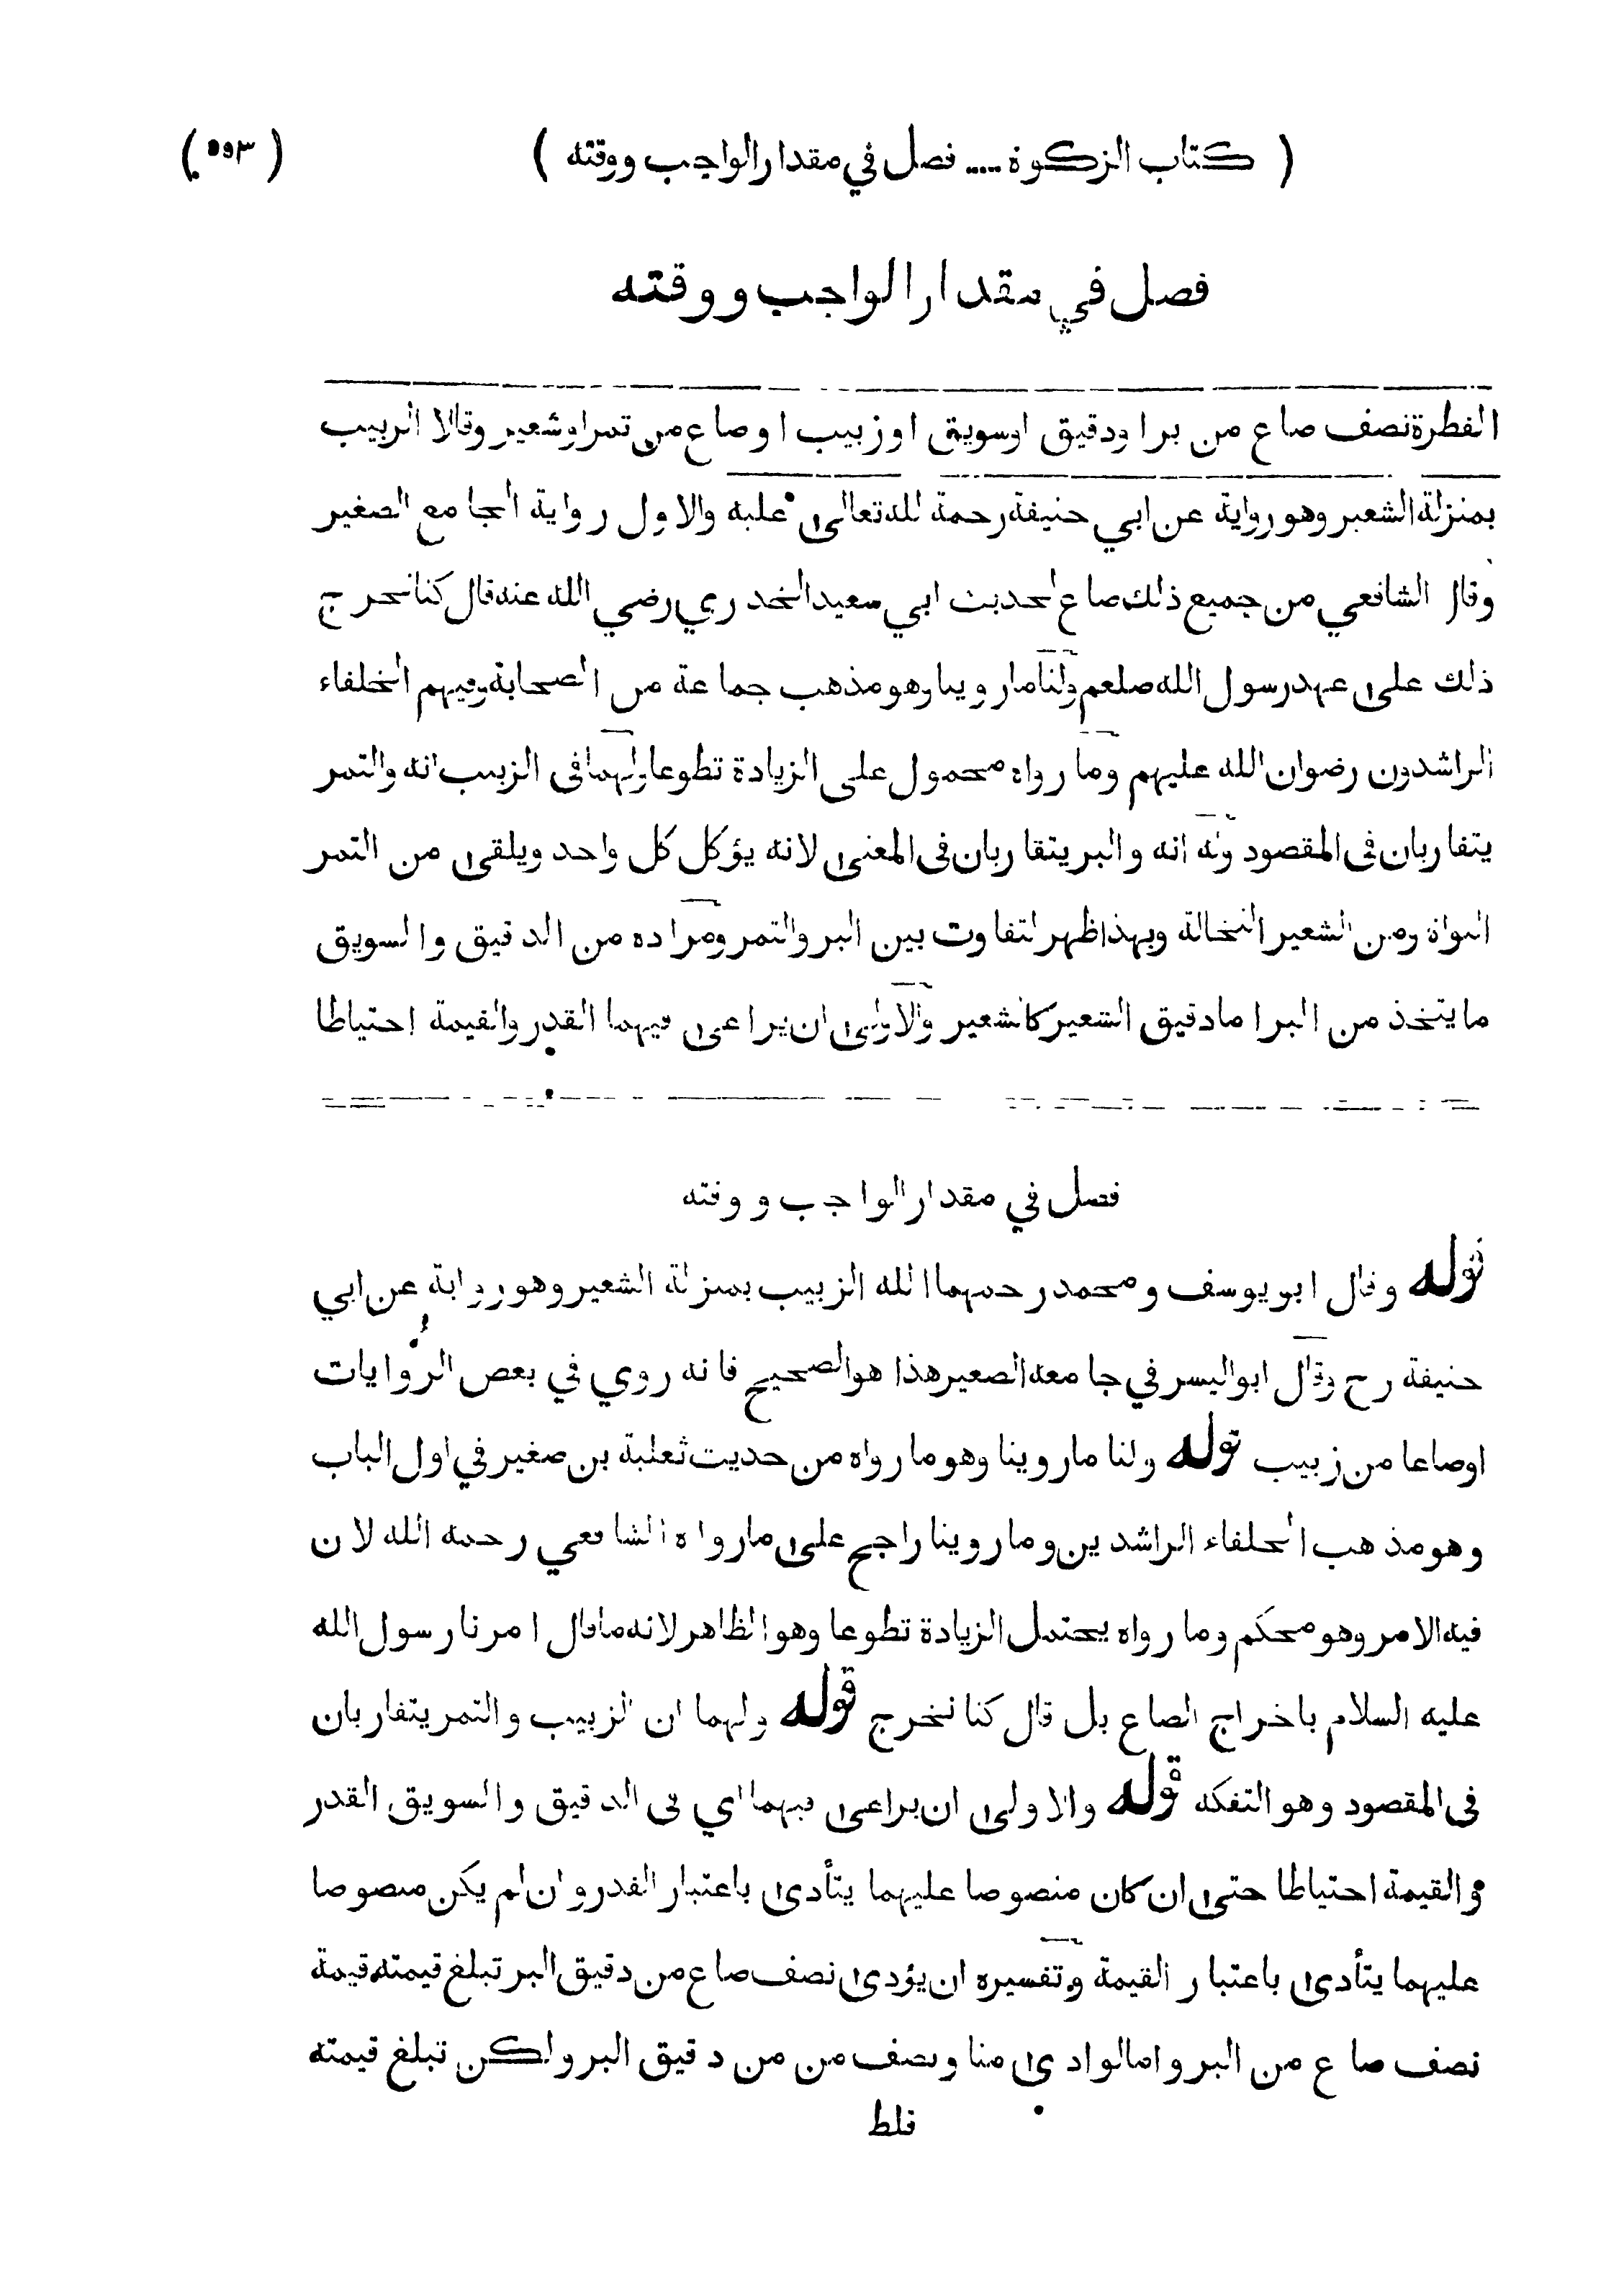 ( كتاب الزكوة .... فصل في مقدار الواجب ووقته )
فصل في مقدار الواجب ووقته
الفطرة نصف صاع من بر او دقيق او سويق او زبيب او صاع من تمر او شعير وقالا الزبيب
بمنزلة الشعير وهو رواية عن ابي حنيفة رحمة الله تعالى عليه والاول رواية الجامع الصغير
وقال الشافعي من جميع ذلك صاع لحديث ابي سعيد الخدري رضي الله عنه قال كنا نخرج
ذلك على عهد رسول الله صلعم ولنا ما روينا وهو مذهب جماعة من الصحابة وفيهم الخلفاء
الراشدون رضوان الله عليهم وما رواه محمول على الزيادة تطوعا ولهما في الزبيب انه والتمر
يتقاربان في المقصود وله انه والبر يتقاربان في المعنى لانه يؤكل كل واحد ويلقى من التمر
النواة ومن الشعير النخالة وبهذا ظهر لتفاوت بين البر والتمر ومراده من الدقيق والسويق
ما يتخذ من البر اما دقيق الشعير كالشعير والاولى ان يراعى فيهما القدر والقيمة احتياطا
فصل في مقدار الواجب ووقته
قوله وقال ابو يوسف ومحمد رحمهما الله الزبيب بمنزلة الشعير وهو رواية عن ابي
حنيفة رح وقال ابو اليسر في جامعه الصغير هذا هو الصحيح فانه روي في بعض الروايات
او صاعا من زبيب قوله ولنا ما روينا وهو ما رواه من حديث ثعلبة بن صغير في اول الباب
وهو مذهب الخلفاء الراشدين وما روينا راجح على ما رواه الشافعي رحمه الله لان
فيه الامر وهو محكم وما رواه يحتمل الزيادة تطوعا وهو الظاهر لانه ما قال امرنا رسول الله
عليه السلام باخراج الصاع بل قال كنا نخرج قوله ولهما ان الزبيب والتمر يتقاربان
في المقصود وهو التفكه قوله والاولى ان يراعى فيهما اي في الدقيق والسويق القدر
والقيمة احتياطا حتى ان كان منصوصا عليهما يتأدى باعتبار القدر وان لم يكن منصوصا
عليهما يتأدى باعتبار القيمة وتفسيره ان يؤدى نصف صاع من دقيق البر تبلغ قيمته قيمة
نصف صاع من البر واما لو ادى منا ونصف من من دقيق البر ولكن تبلغ قيمته